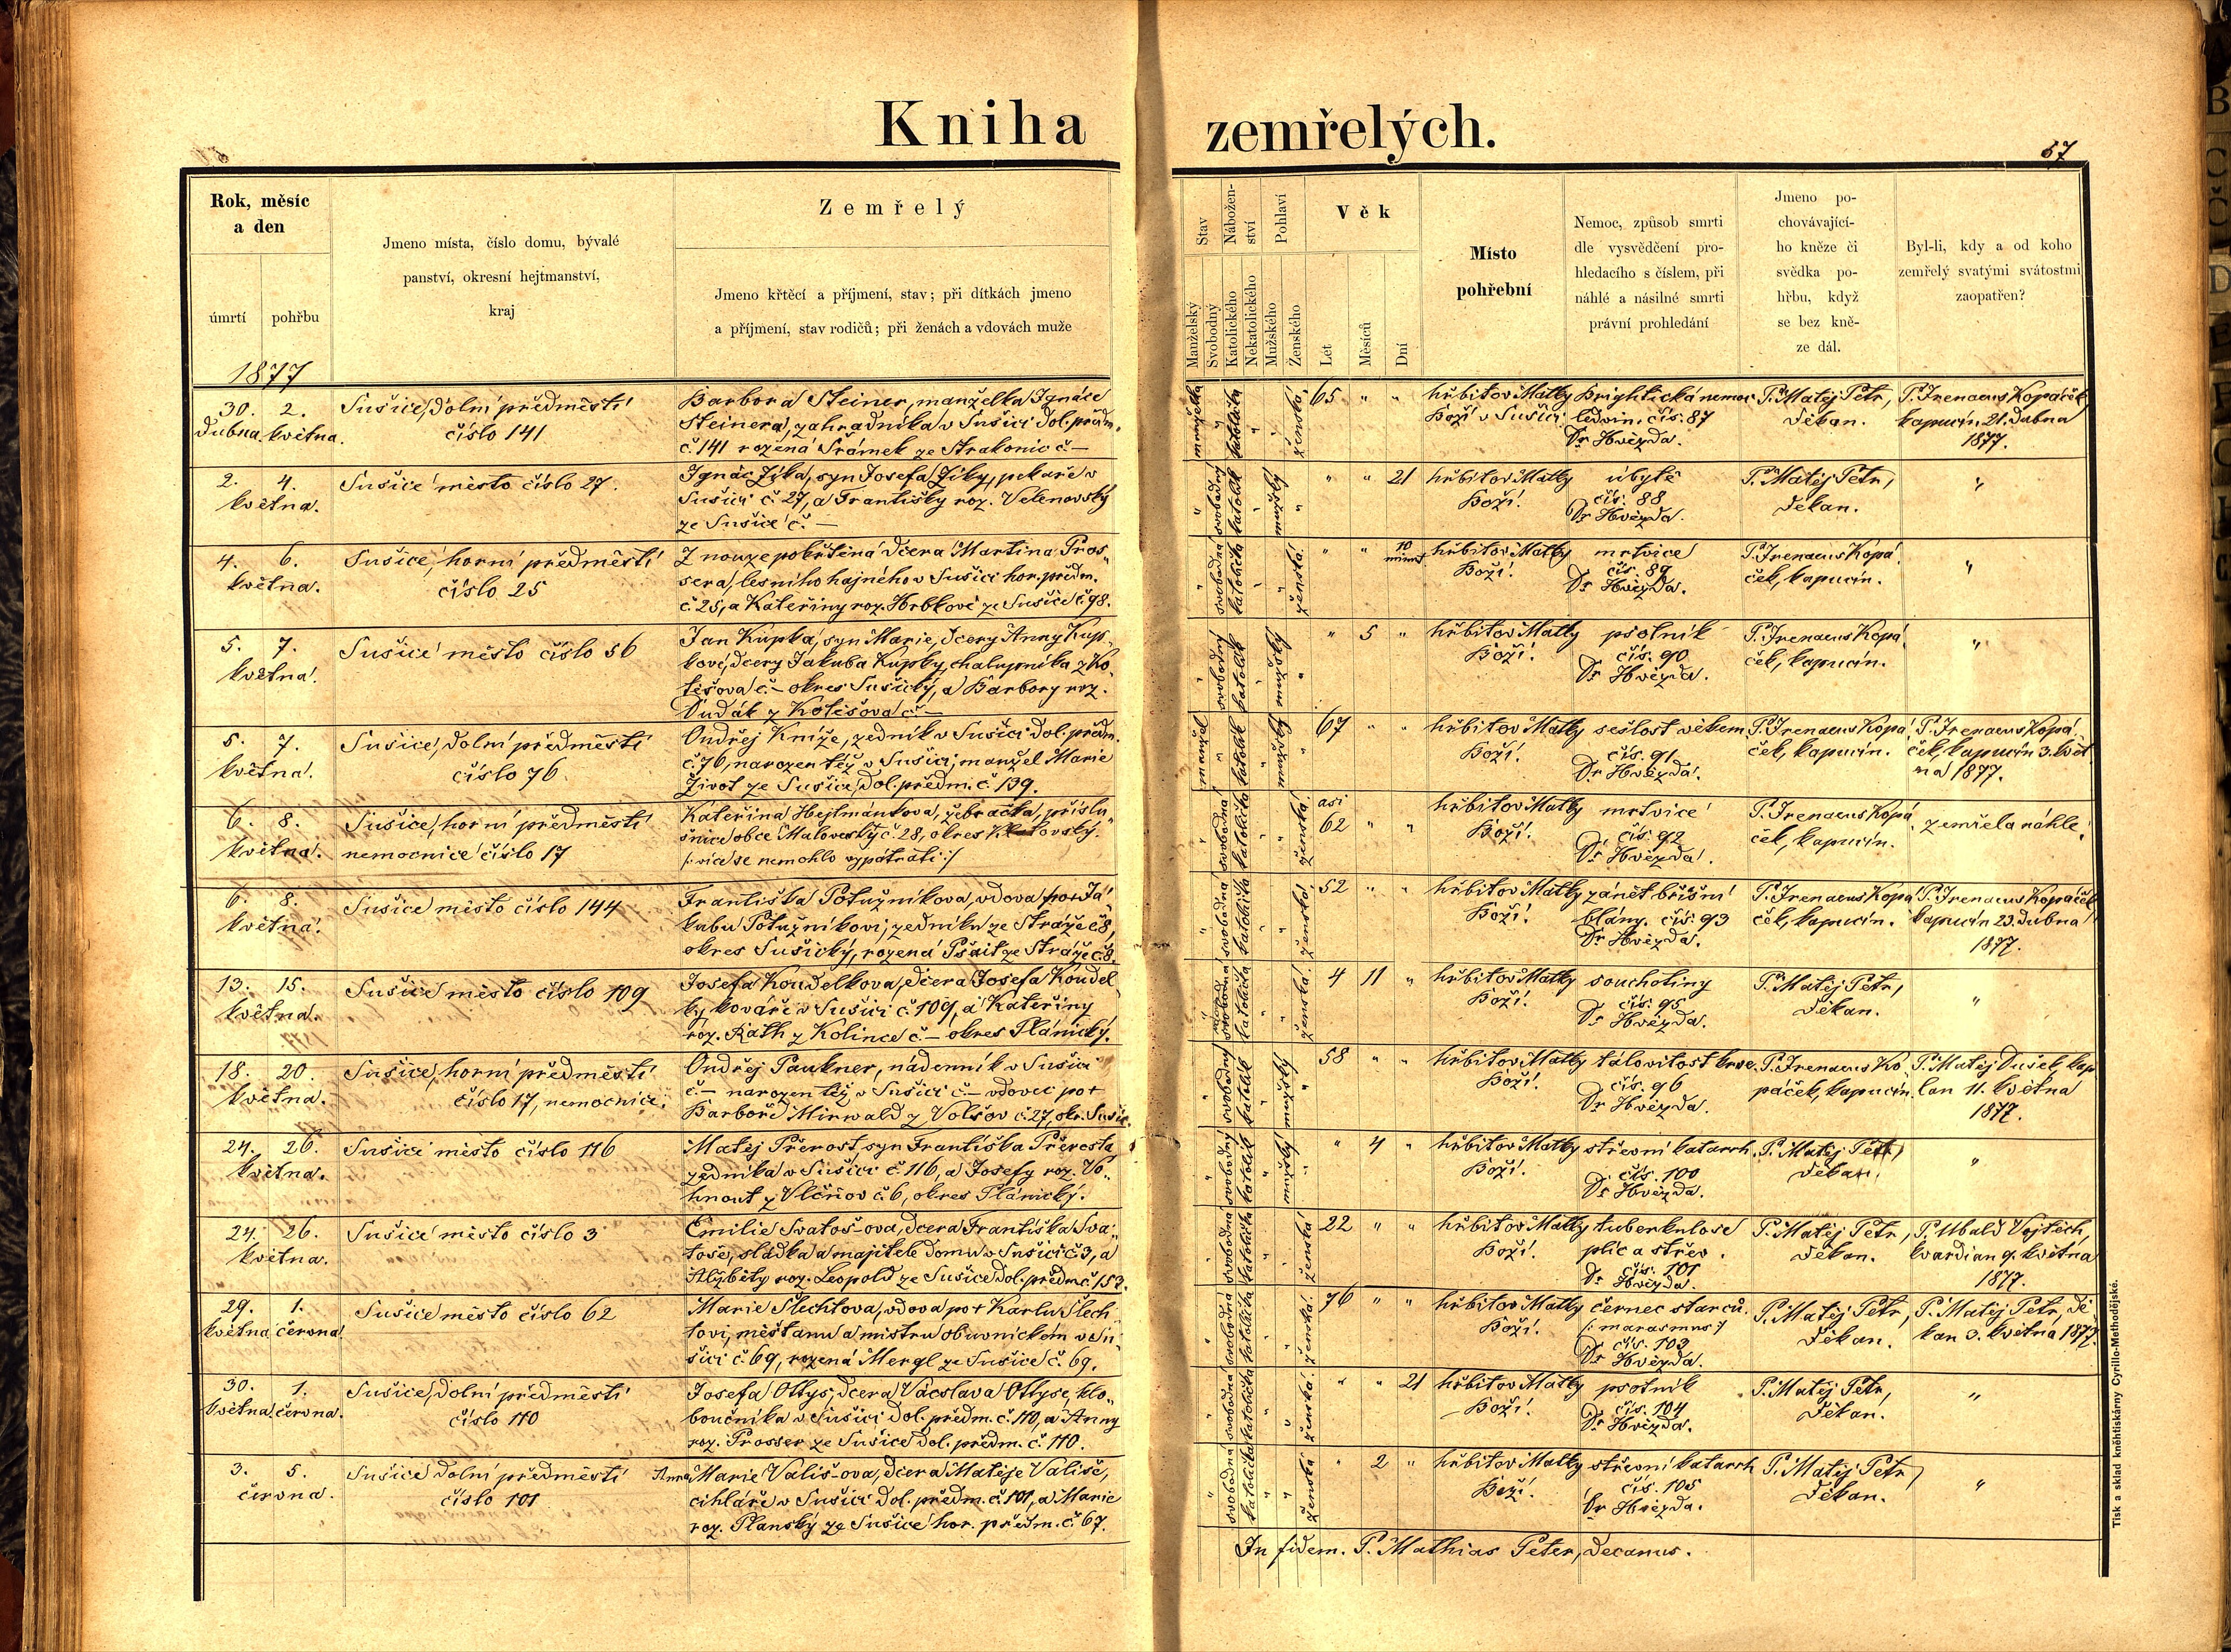 Kniha
zemřelých.
57
Rok, měsíc
a den
úmrtí
pohřbu
1877
Jmeno místa, číslo domu, bývalé
panství, okresní hejtmanství,
kraj
Zemřelý
Jmeno křtěcí a příjmení, stav; při dítkách jmeno
a příjmení, stav rodičů; při ženách a vdovách muže
Stav
Nábožen-
ství
Pohlaví
Věk
Manželský
Svobodný
Katolického
Nekatolického
Mužského
Ženského
Let
Měsíců
Dní
Místo
pohřební
Nemoc, způsob smrti
dle vysvědčení pro-
hledacího s číslem, při
náhlé a násilné smrti
právní prohledání
Jmeno po-
chovávající-
ho kněze či
svědka po-
hřbu, když
se bez kně-
ze dál.
Byl-li, kdy a od koho
zemřelý svatými svátostmi
zaopatřen?
30. 2.
dubna. května.
Sušice, dolní předměstí
číslo 141
Barbora Steiner, manželka Ignáce
Steinera, zahradníka v Sušici dol. předm.
č. 141 rozená Šrámek ze Strakonic č –
manželka " katolička " " ženská. 65 " "
hřbitov Matky
Boží v Sušici
Brightická nemoc
ledvin. čís. 87
Dr Hvězda.
P. Matěj Petr,
děkan.
P. Irenaeus Kopáček
kapucín, 21. dubna
1877.
2. 4.
května.
Sušice město číslo 27.
Ignác Zíka, syn Josefa Zíky, pekaře v
Sušici č. 27, a Františky roz. Velenovský
ze Sušice č. –
" svobodný katolík " mužský " " " 21
hřbitov Matky
Boží.
úbytě
čís. 88
Dr Hvězda.
P. Matěj Petr,
děkan.
"
4. 6.
května.
Sušice, horní předměstí
číslo 25
Z nouze pokřtěná dcera Martina Pros„
sera, lesního hajného v Sušici hor. předm.
č. 25, a Kateřiny roz. Hrbkové ze Sušice č. 98.
" svobodná katolička " " ženská. " " 10
minut
hřbitov Matky
Boží.
mrtvice
čís. 89
Dr Hvězda.
P. Irenaeus Kopá„
ček, kapucín.
"
5. 7.
května.
Sušice město číslo 56
Jan Kupka, syn Marie, dcery Anny Kup„
kové, dcery Jakuba Kupky, chalupníka z Ko„
těšova č. – okres Sušický, a Barbory roz.
Dudák z Kotěšova č –
" svobodný katolík " mužský " " 5 "
hřbitov Matky
Boží.
psotník
čís. 90
Dr Hvězda.
P. Irenaeus Kopá„
ček, kapucín.
"
5. 7.
května.
Sušice, dolní předměstí
číslo 76.
Ondřej Kníže, zedník v Sušici dol. předm.
č. 76, narozen též v Sušici, manžel Marie
Život ze Sušice, dol. předm. č. 139.
manžel " katolík " mužský " 67 " "
hřbitov Matky
Boží.
sešlost věkem
čís. 91
Dr Hvězda.
P. Irenaeus Kopá„
ček, kapucín.
P. Irenaeus Kopá„
ček, kapucín 3. květ„
na 1877.
6. 8.
května.
Sušice, horní předměstí
nemocnice číslo 17
Kateřina Hejtmánkova, žebračka, příslu„
šnice obce Maloveský č. 28, okres Klatovský.
/: více se nemohlo vypátrati :/
" svobodná katolička " " ženská. asi
62 " "
hřbitov Matky
Boží.
mrtvice
čís. 92
Dr Hvězda.
P. Irenaeus Kopá„
ček, kapucín.
zemřela náhle.
6. 8.
května.
Sušice město číslo 144
Františka Potužníkova, vdova po + Ja„
kubu Potužníkovi, zedníku ze Stráže č 8,
okres Sušický, rozená Pšait ze Stráže č. 8.
" svobodná katolička " " ženská 52 " "
hřbitov Matky
Boží.
zánět břišní
blány. čís. 93
Dr Hvězda.
P. Irenaeus Kopá„
ček, kapucín.
P. Irenaeus Kopáček
kapucín 23. dubna
1877.
13. 15.
května.
Sušice město číslo 109
Josefa Koudelkova, dcera Josefa Koudel„
ky, kováře v Sušici č. 109, a Kateřiny
roz. Rath z Kolince č – okres Plánický.
svobodná katolička " " ženská. 4 11 "
hřbitov Matky
Boží.
souchotiny
čís. 95
Dr Hvězda.
P. Matěj Petr,
děkan.
"
18. 20.
května.
Sušice, horní předměstí
číslo 17, nemocnice.
Ondřej Paukner, nádenník v Sušici
č – narozen též v Sušici č – vdovec po +
Barboře Mirwald z Volšov č. 27, okr. Sušic.
" svobodný katolík " mužský " 58 " "
hřbitov Matky
Boží.
tálovitost krve.
čís. 96
Dr Hvězda.
P. Irenaeus Ko„
páček, kapucín.
P. Matěj Dušek, kap
lan 11. května
1877.
24. 26.
května.
Sušice město číslo 116
Matěj Přerost, syn Františka Přerosta,
zedníka v Sušici č. 116, a Josefy roz. Vo„
hnout z Vlčňov č. 6, okres Plánický.
" svobodný katolík " mužský " " 4 "
hřbitov Matky
Boží.
střevní katarrh.
čís. 100
Dr Hvězda.
P. Matěj Petr,
děkan.
"
24. 26.
května.
Sušice město číslo 3
Emilie Svatoš-ova, dcera Františka Sva„
toše, sládka a majitele domu v Sušici č 3, a
Alžběty roz. Leopold ze Sušice dol. předm č. 153.
" svobodná katolička " " ženská 22 " "
hřbitov Matky
Boží.
tuberkulose
plic a střev.
čís. 101
Dr Hvězda.
P. Matěj Petr,
děkan.
P. Ubald Vojtěch,
kvardian 9. května
1877.
29. 1.
května června
Sušice město číslo 62
Marie Šlechtova, vdova po + Karlu Šlech„
tovi, měšťanu a mistru obuvnickém v Su„
šici č. 69, rozená Mergl ze Sušice č. 69.
" svobodná katolička " " ženská. 76 " "
hřbitov Matky
Boží.
černec starců.
/: marasmus :/
čís. 103
Dr Hvězda.
P. Matěj Petr,
děkan.
P. Matěj Petr, dě„
kan 3. května 1877.
30. 1.
května června.
Sušice, dolní předměstí
číslo 110
Josefa Ottys, dcera Vácslava Ottyse, klo„
boučníka v Sušici dol. předm. č. 110, a Anny
roz. Prosser ze Sušice dol. předm. č. 110.
" svobodná katolička " " ženská. " " 21
hřbitov Matky
Boží.
psotník
čís. 104
Dr Hvězda.
P. Matěj Petr,
děkan.
"
3. 5.
června.
Sušice dolní předměstí
číslo 101
Anna Marie Vališ-ova, dcera Matěje Vališe,
cihláře v Sušici dol. předm. č. 101, a Marie
roz. Planský ze Sušice hor. předm. č. 67.
" svobodná katolička " " ženská " 2 "
hřbitov Matky
Boží.
střevní katarrh
čís. 105
Dr Hvězda.
P. Matěj Petr,
děkan.
"
In fidem. P. Mathias Peter, decanus.
Tisk a sklad kněhtiskárny Cyrillo-Methodějské.